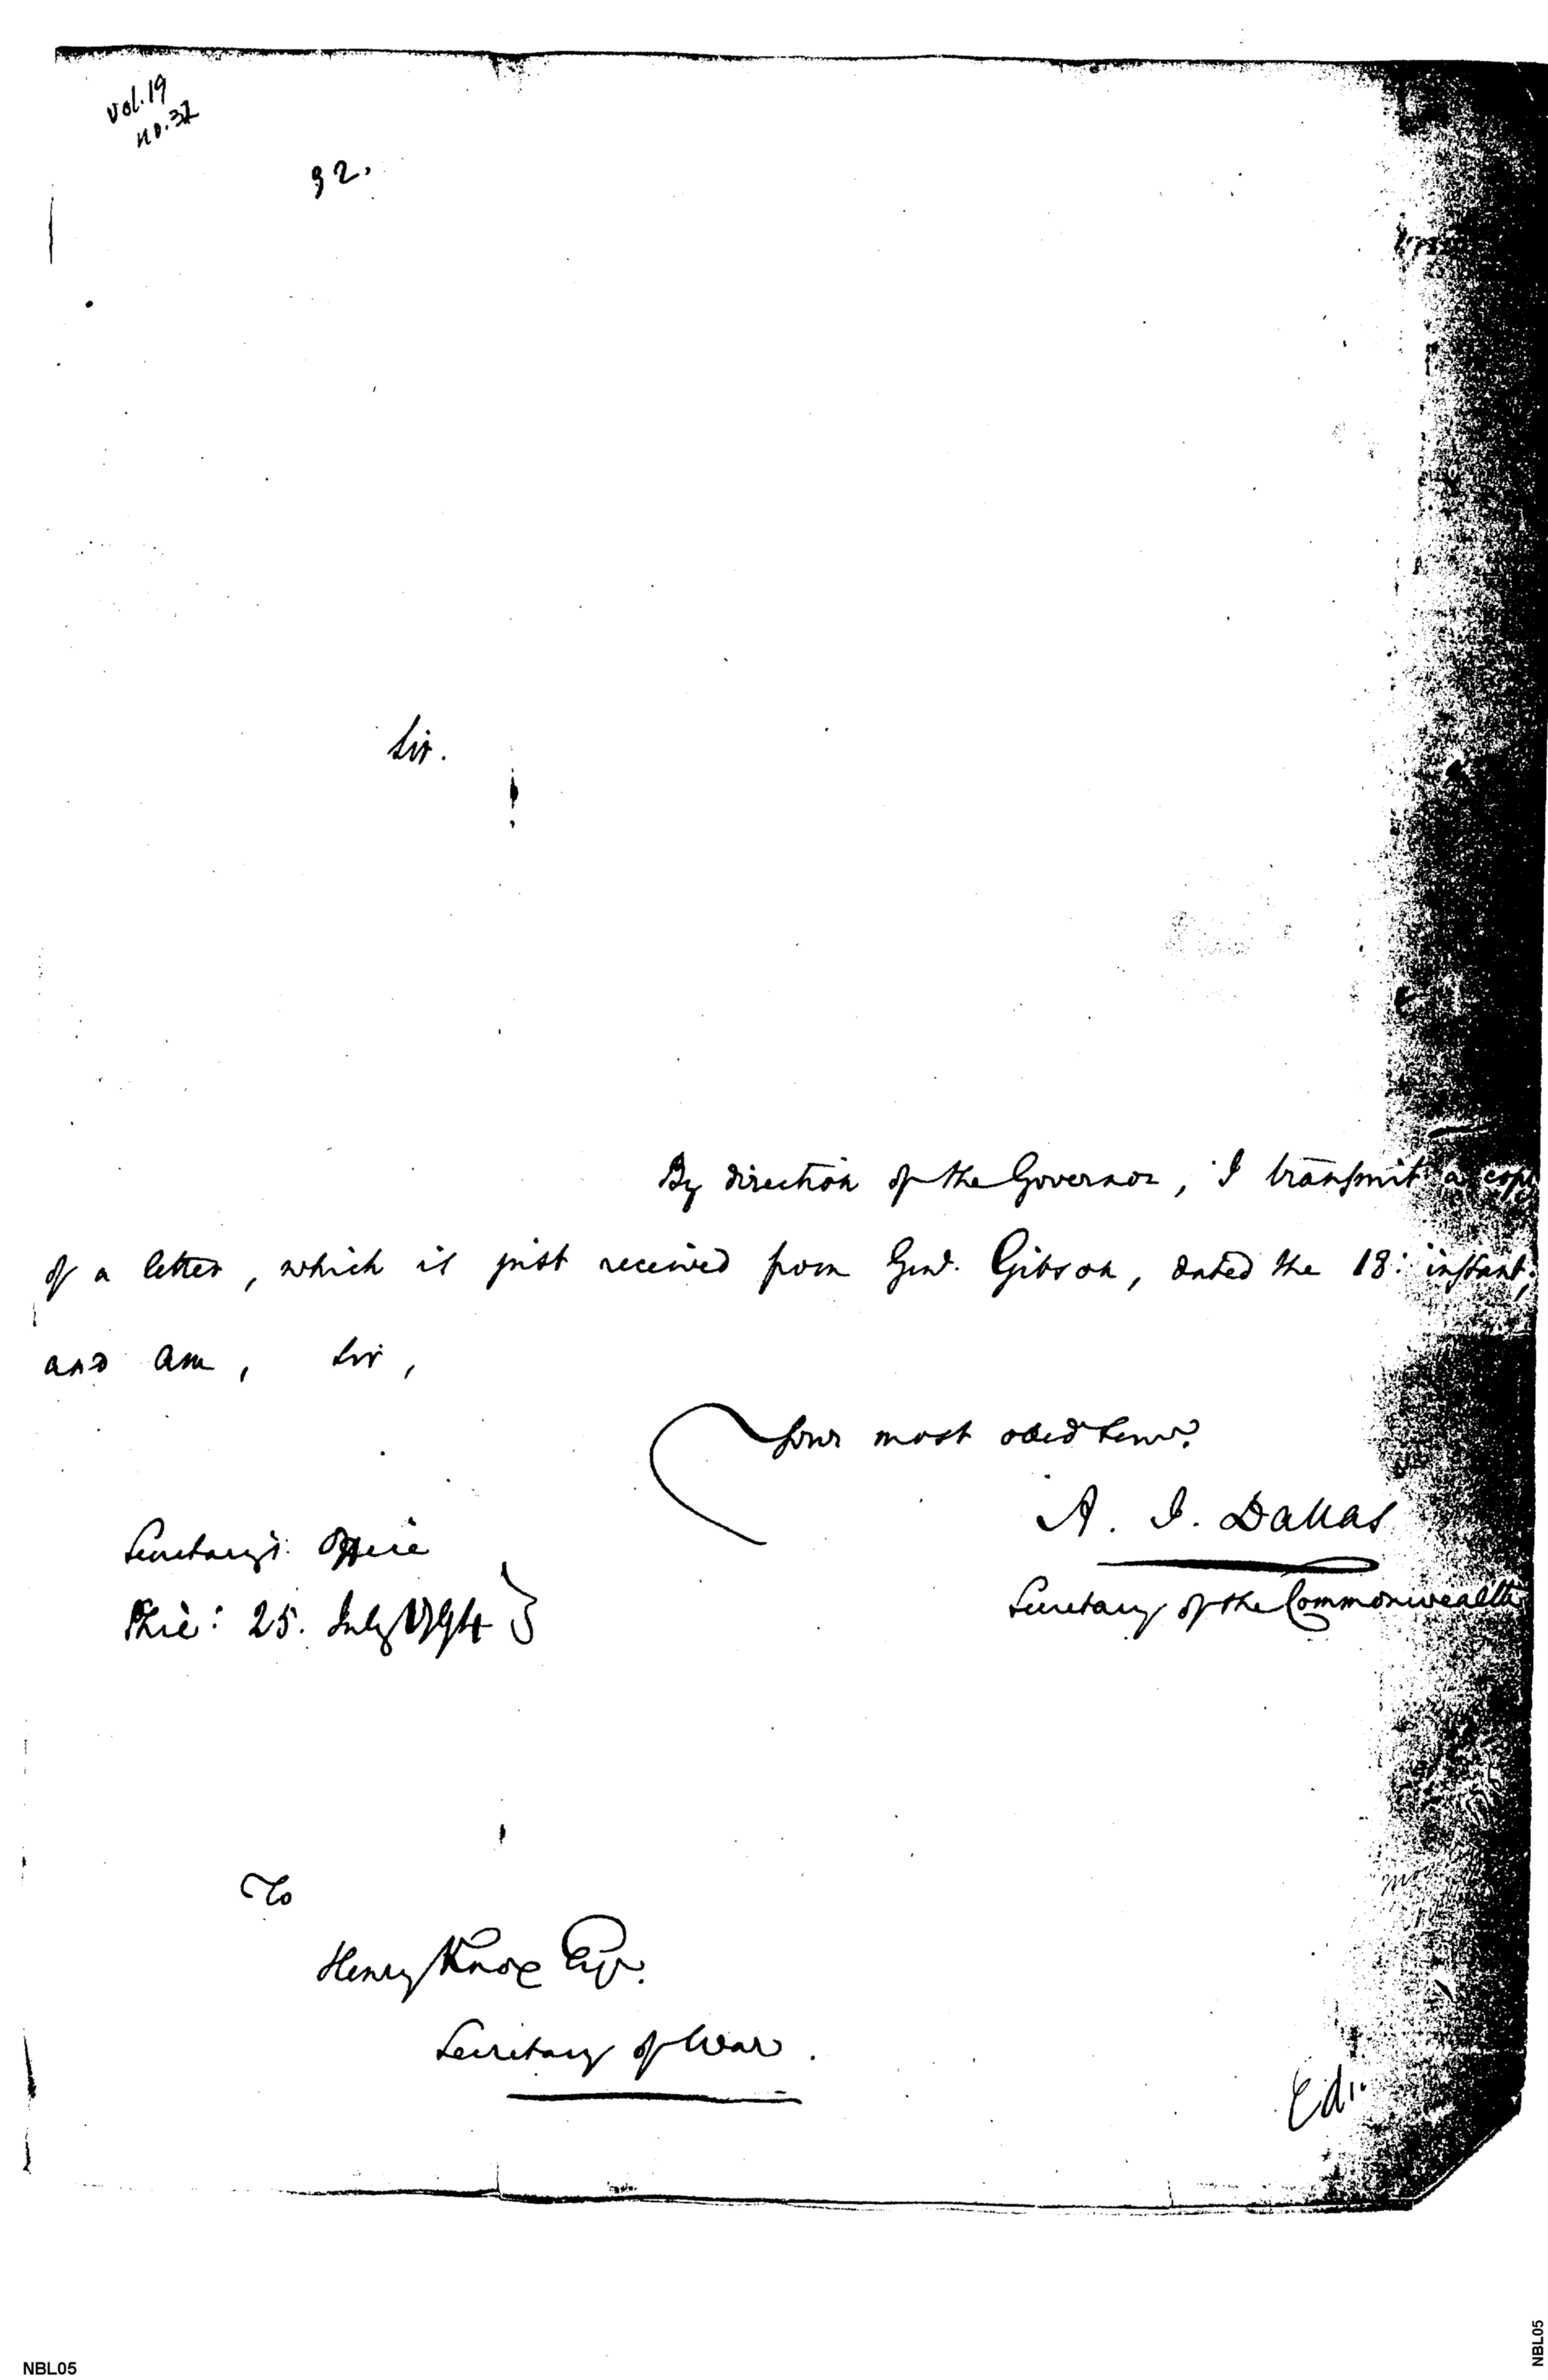 vol. 19
no. 32
32.
Sir.
By direction of the Governor, I transmit a copy
of a letter, which is just received from Genl. Gibson, dated the 18: instant;
and am, Sir,
Your most obed Serv.
A. J. Dallas
Secretary of the Commonwealth
Secretary's Office
Phil: 25. July 1794
To
Henry Knox Esqr.
Secretary of War.
NBL05
NBL05